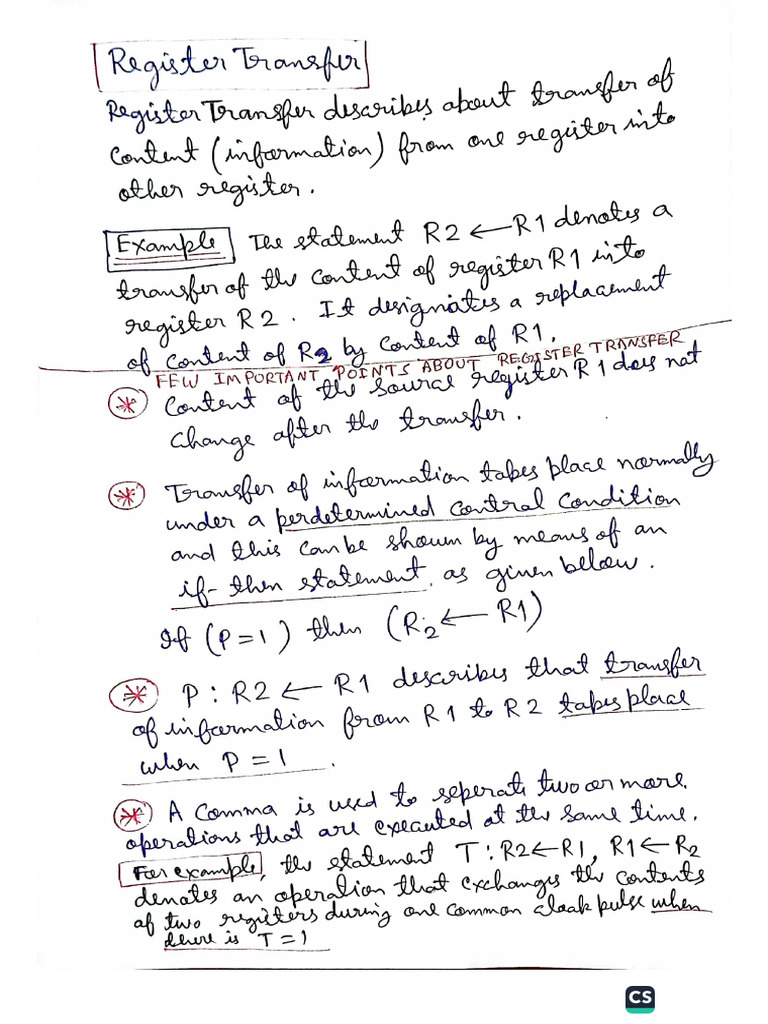 Register Transfer
Register Transfer describes about transfer of
content (information) from one register into
other register.
Example The statement R2 ← R1 denotes a
transfer of the content of register R1 into
register R2. It designates a replacement
of content of R2 by content of R1.
FEW IMPORTANT POINTS ABOUT REGISTER TRANSFER
* Content of the source register R1 does not
change after the transfer.
* Transfer of information takes place normally
under a perdetermined control condition
and this can be shown by means of an
if-then statement, as given below.
If (P=1) then (R2 ← R1)
* P : R2 ← R1 describes that transfer
of information from R1 to R2 takes place
when P = 1.
* A comma is used to seperate two or more
operations that are executed at the same time.
For example, the statement T : R2 ← R1, R1 ← R2
denotes an operation that exchanges the contents
of two registers during one common cloak pulse when
there is T = 1
CS